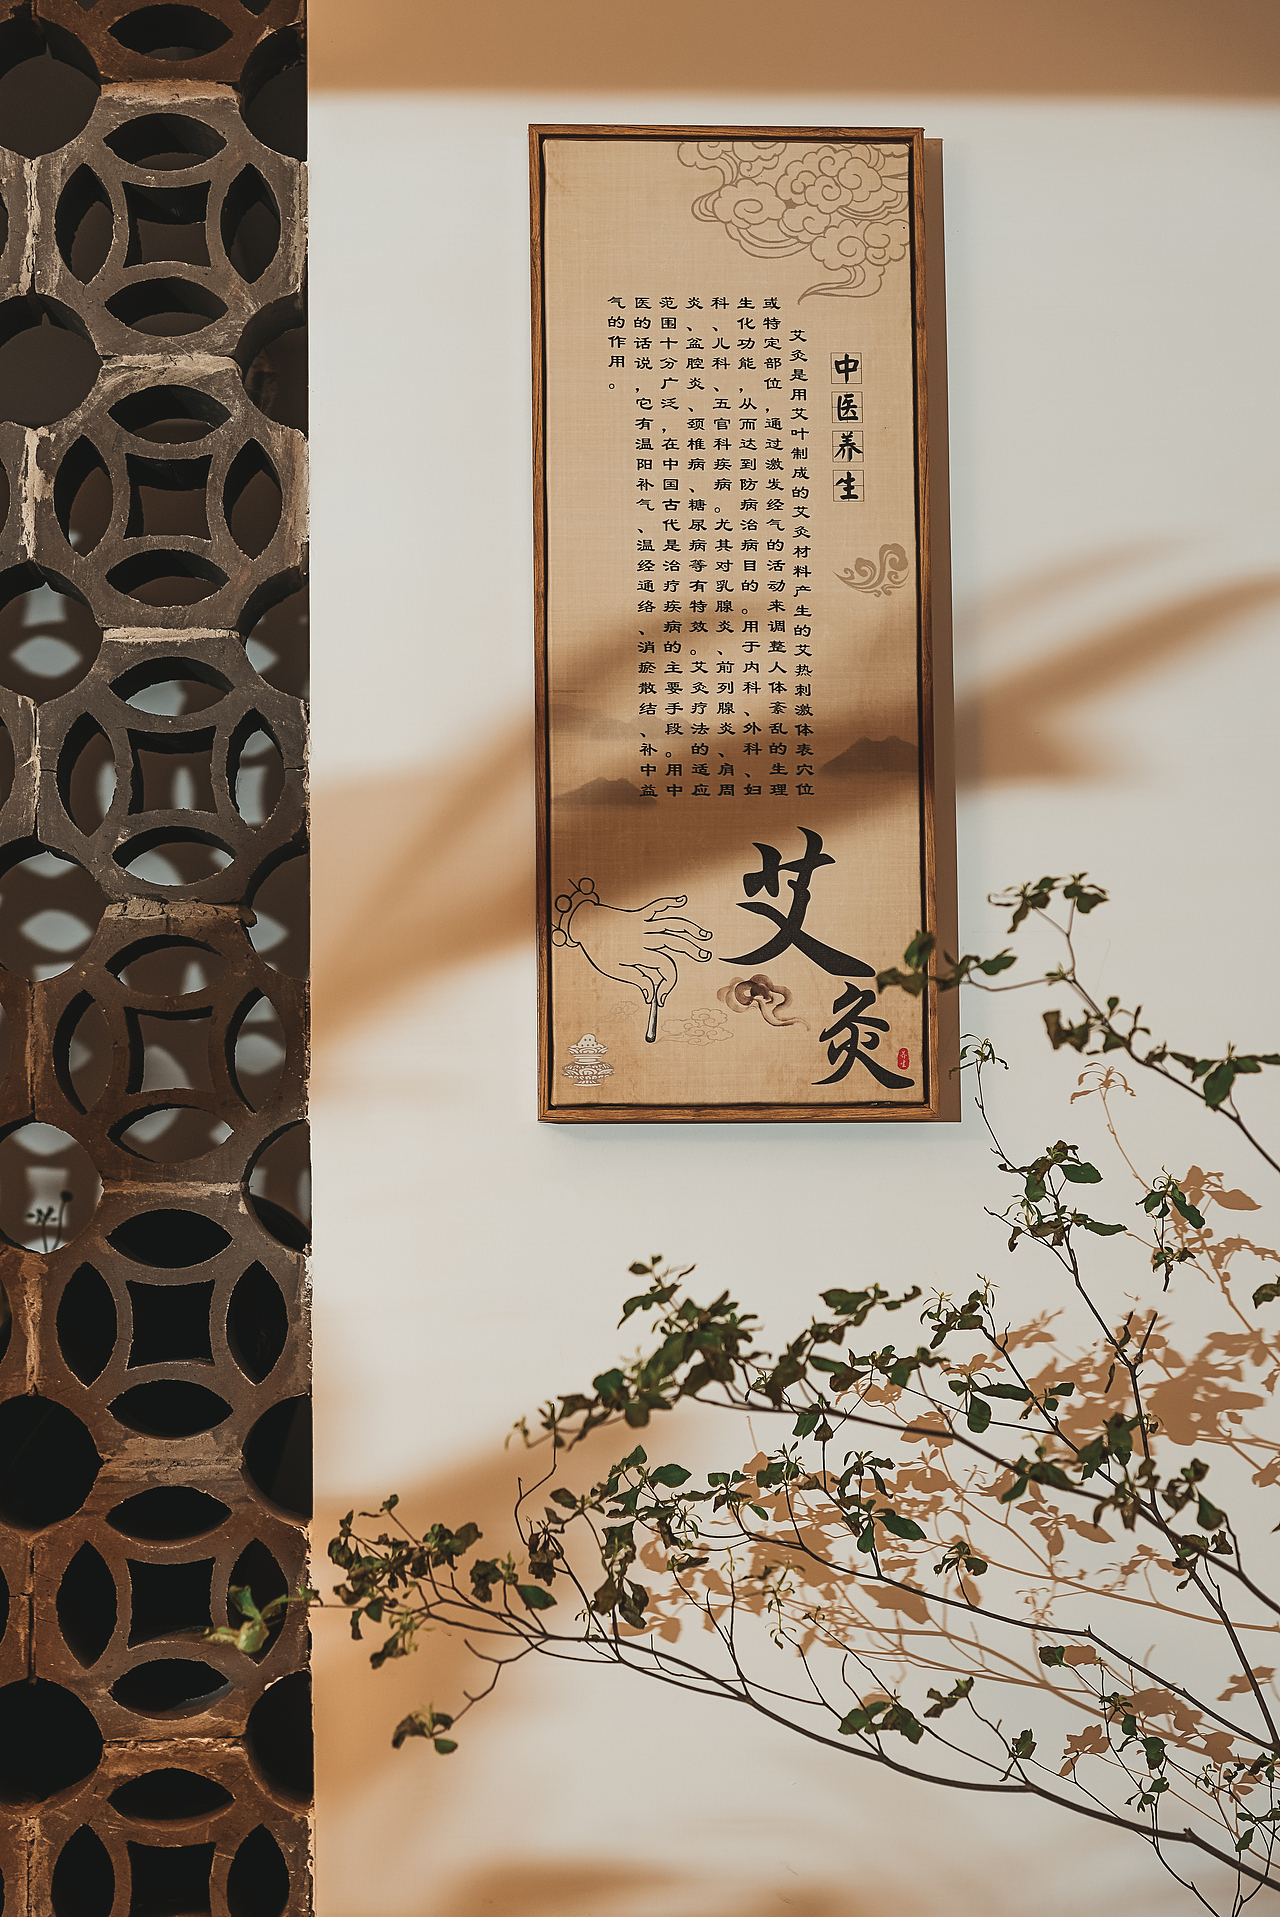 中医养生
艾灸是用艾叶制成的艾灸材料产生的艾热刺激体表穴位
或特定部位，通过激发经气的活动来调整人体紊乱的生理
生化功能，从而达到防病治病目的。用于内科、外科、妇
科、儿科、五官科疾病。尤其对乳腺炎、前列腺炎、肩周
炎、盆腔炎、颈椎病、糖尿病等有特效。艾灸疗法的适应
范围十分广泛，在中国古代是治疗疾病的主要手段。用中
医的话说，它有温阳补气、温经通络、消瘀散结、补中益
气的作用。
艾灸
养生